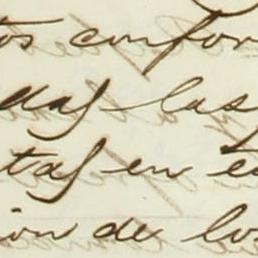 tos confor
das las
tas en es
ion de los